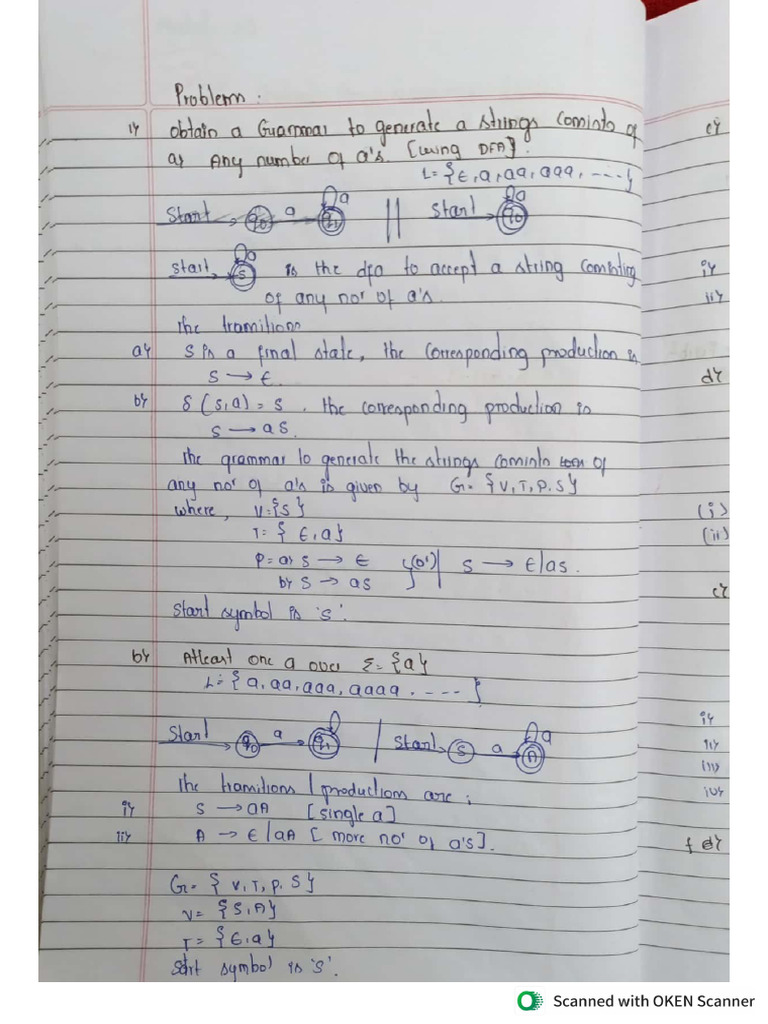 Problem :
1) obtain a Grammar to generate a strings consists of
a) Any number of a's. [using DFA].
L = {ε, a, aa, aaa, ....}
Start q0 a q1 a || Start q0 a
Start S a is the dfa to accept a string consisting
of any no' of a's.
The transitions
a) S is a final state, the corresponding production is
S → ε.
b) δ (S, a) = S . the corresponding production is
S → aS.
The grammar to generate the strings consists of
any no' of a's is given by G = {V, T, P, S}
where, V = {S}
T = { ε, a}
P = a) S → ε } (or) | S → ε/aS.
b) S → aS
Start symbol is 'S'.
b) Atleast one a over Σ = {a}
L = { a, aa, aaa, aaaa . .... }
Start q0 a q1 | Start S a A a
The transitions / productions are ;
i) S → aA [single a]
ii) A → ε/aA [ more no' of a's].
G = { V, T, P, S}
V = {S, A}
T = {ε, a}
Start symbol is 'S'.
c)
i)
ii)
d)
(i)
(ii)
e)
i)
ii)
iii)
iv)
f
Scanned with OKEN Scanner